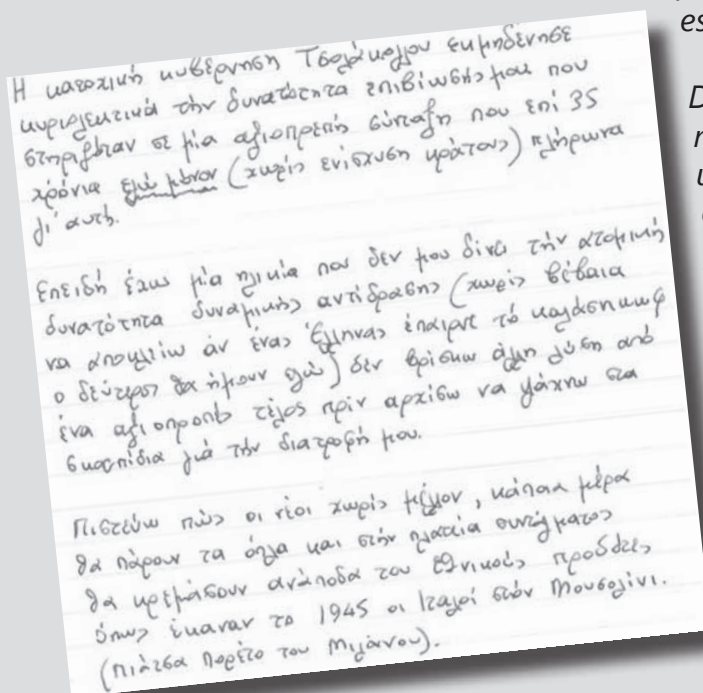 Η κατοχική κυβέρνηση Τσολάκογλου εκμηδένησε
κυριολεκτικά την δυνατότητα επιβίωσής μου που
στηριζόταν σε μία αξιοπρεπή σύνταξη που επί 35
χρόνια εγώ μόνον (χωρίς ενίσχυση κράτους) πλήρωνα
γι' αυτή.
Επειδή έχω μία ηλικία που δεν μου δίνει την ατομική
δυνατότητα δυναμικής αντίδρασης (χωρίς βέβαια
να αποκλείω άν ένας Έλληνας έπαιρνε τό καλάσνικωφ
ο δεύτερος θα ήμουν εγώ) δεν βρίσκω άλλη λύση από
ένα αξιοπρεπές τέλος πρίν αρχίσω να ψάχνω στα
σκουπίδια γιά την διατροφή μου.
Πιστεύω πώς οι νέοι χωρίς μέλλον, κάποια μέρα
θα πάρουν τα όπλα και στήν πλατεία συντάγματος
θα κρεμάσουν ανάποδα τους εθνικούς προδότες
όπως έκαναν το 1945 οι Ιταλοί στόν Μουσολίνι.
(πιάτσα Πορέτο του Μιλάνου).
es
D